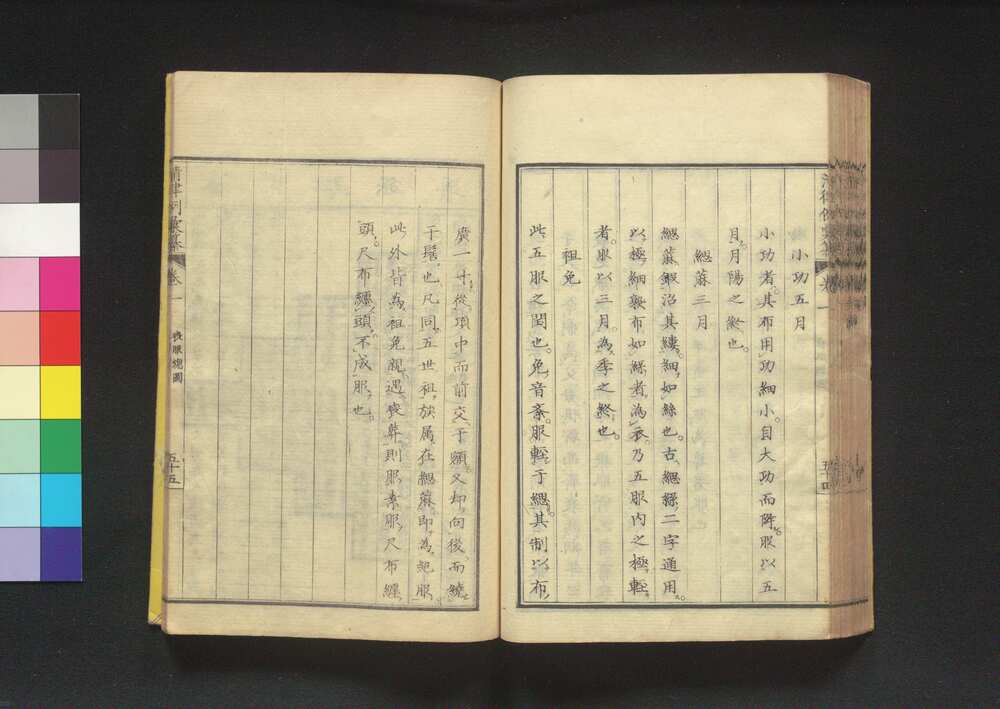 小功五月
小功者其布用功細小自大功而降服以五
月月陽之終也
緦蔴三月
緦蔴鍛治其縷細如絲也古緦繐二字通用
以極細熟布如繐者為衣乃五服内之極輕
者服以三月為季之終也
袒免
此五服之閏也免音紊服輕于緦其制以布
廣一寸從項中而前交于額又却向後而繞
于髻也凡同五世祖族属在緦蔴即為絶服
此外皆為袒免親遇喪葬則服素服尺布纏
頭尺布纏頭不成服也
清律例彙纂
卷一
喪服總圖
五十五